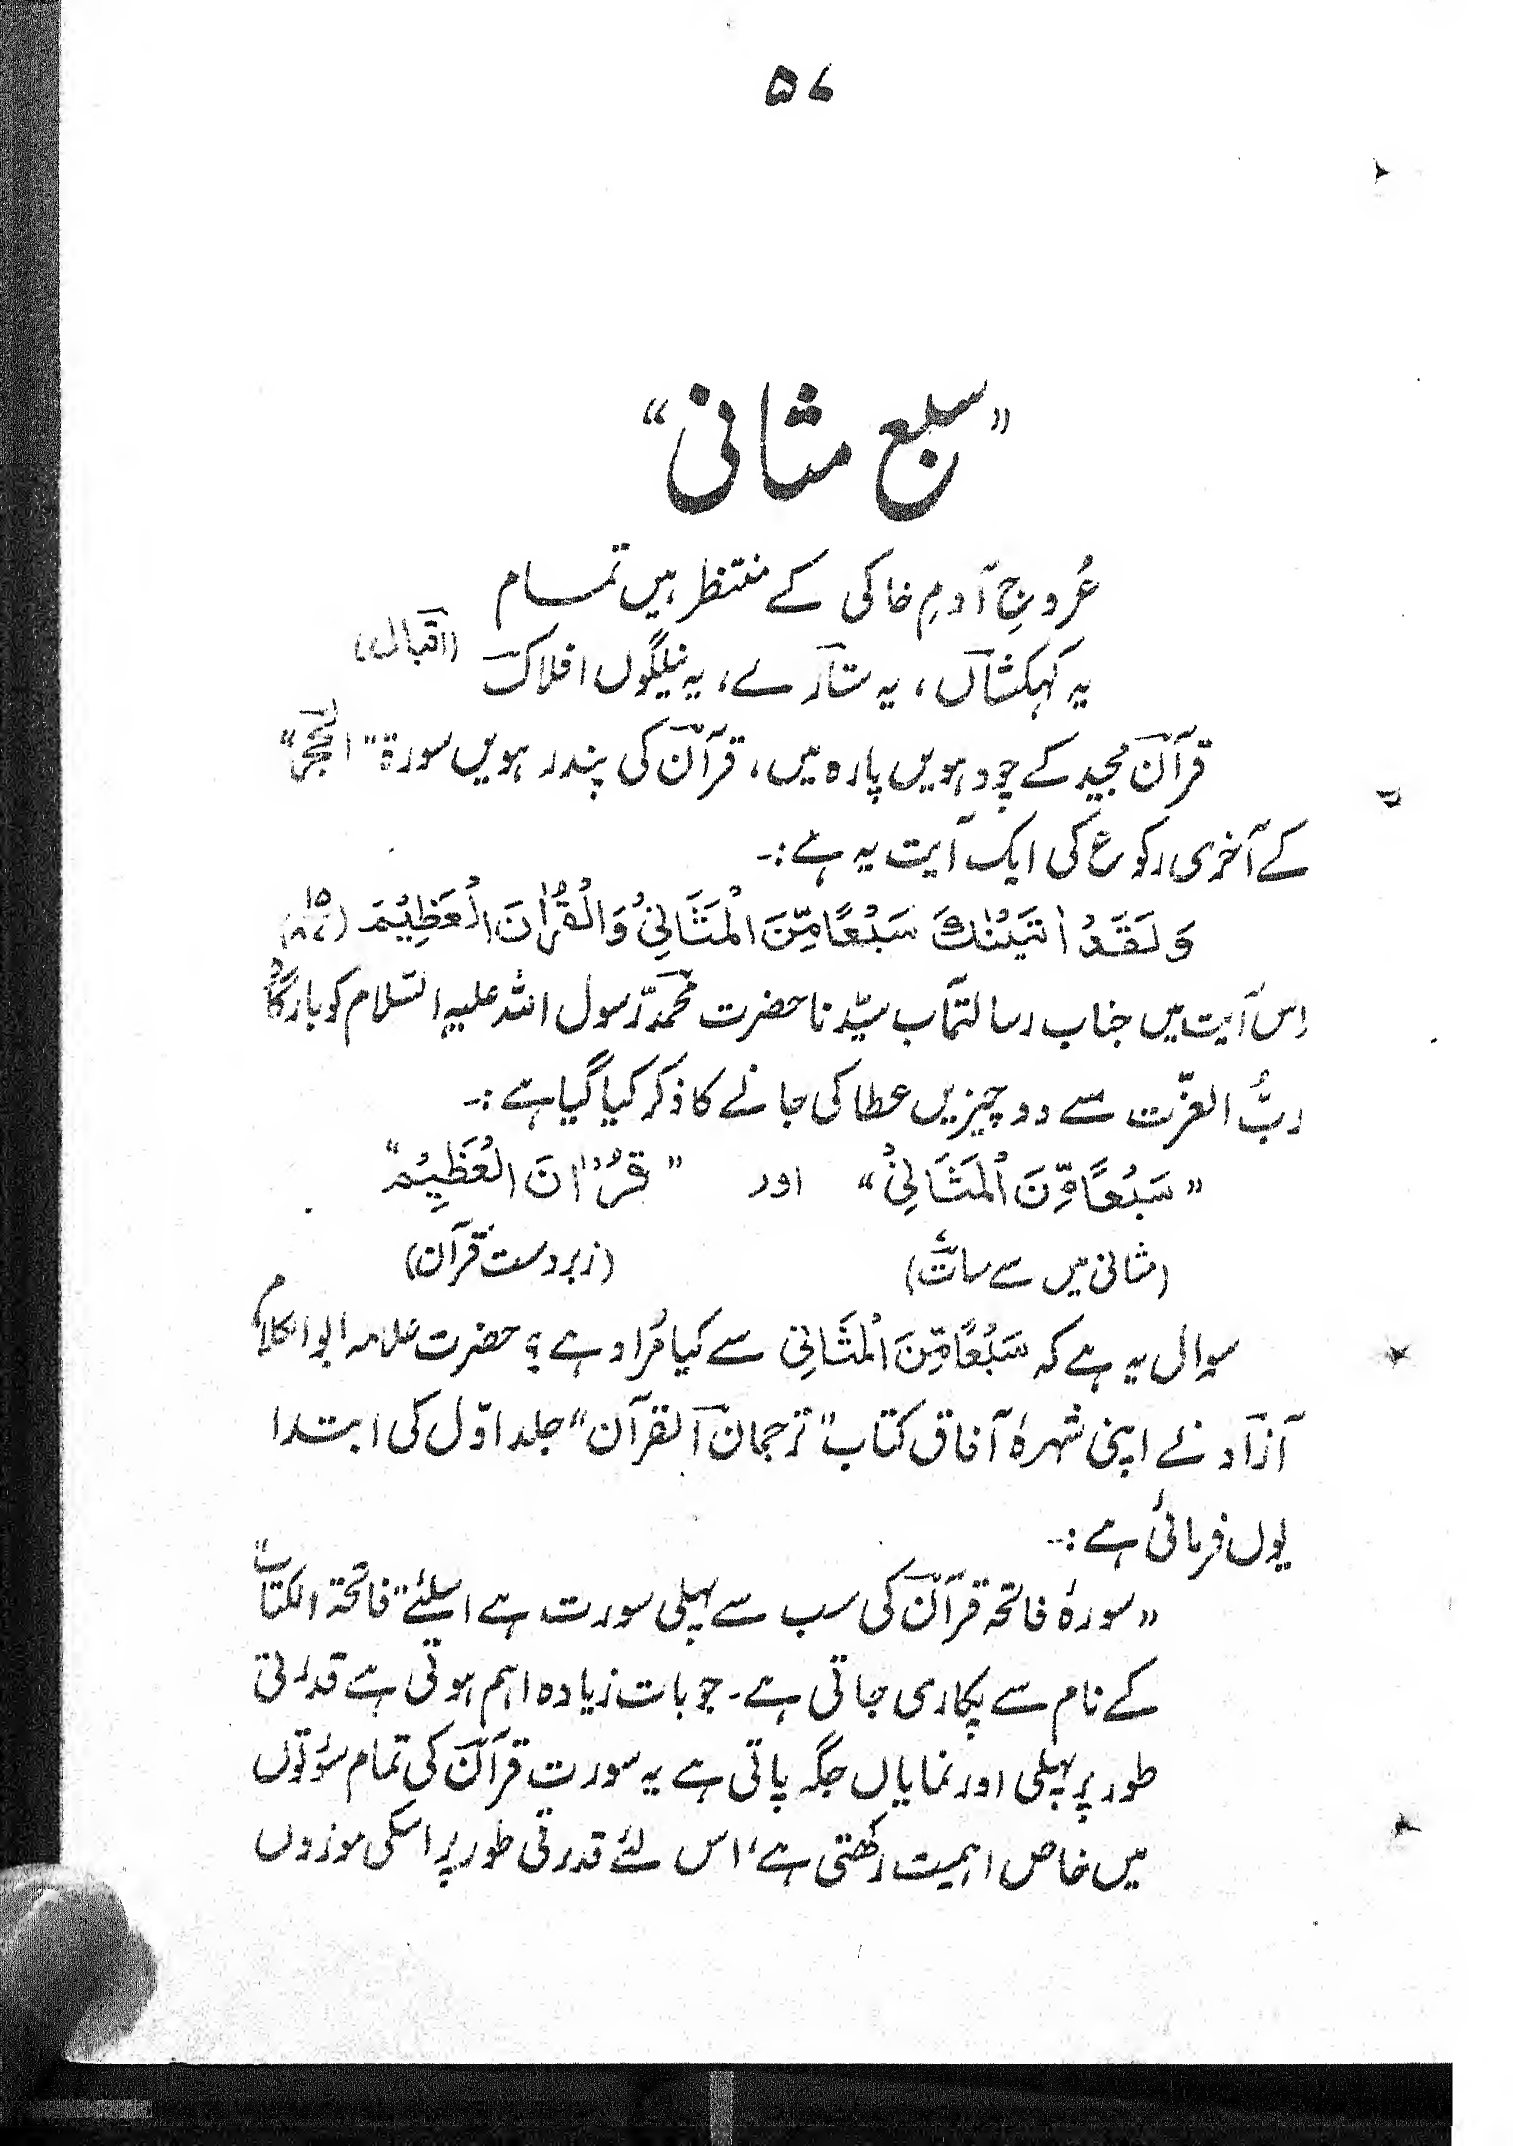 ۵۷
"سبع مثانی"
عُروجِ آدمِ خاکی کے منتظر ہیں تمام
یہ کہکشاں، یہ ستارے، یہ نیلگوں افلاک (اقبال)
قرآن مجید کے چودہویں پارہ میں، قرآن کی پندرہویں سورۃ "الحجر"
کے آخری رکوع کی ایک آیت یہ ہے:۔
وَلَقَدْ اٰتَيْنٰكَ سَبْعًا مِّنَ الْمَثَانِيْ وَالْقُرْاٰنَ الْعَظِيْمَ (۱۵/۸۷)
اِس آیت میں جناب رسالتمآب سیّدنا حضرت محمدؐ رسول اللہ علیہ السّلام کو بارگاہ
ربُّ العزّت سے دو چیزیں عطا کی جانے کا ذکر کیا گیا ہے:۔
"سَبْعًا مِّنَ الْمَثَانِيْ" اور "قُرْاٰنَ الْعَظِيْمَ"
(مثانی میں سے سات) (زبردست قرآن)
سوال یہ ہے کہ سَبْعًا مِّنَ الْمَثَانِي سے کیا مُراد ہے؟ حضرت علامہ ابوالکلام
آزاد نے اپنی شہرۂ آفاق کتاب "ترجمان القرآن" جلد اوّل کی ابتدا
یوں فرمائی ہے:۔
"سورۂ فاتحہ قرآن کی سب سے پہلی سورت ہے اسلئے "فاتحۃ الکتاب"
کے نام سے پکاری جاتی ہے۔ جو بات زیادہ اہم ہوتی ہے قدرتی
طور پر پہلی اور نمایاں جگہ پاتی ہے یہ سورت قرآن کی تمام سورتوں
میں خاص اہمیت رکھتی ہے، اس لئے قدرتی طور پر اسکی موزوں